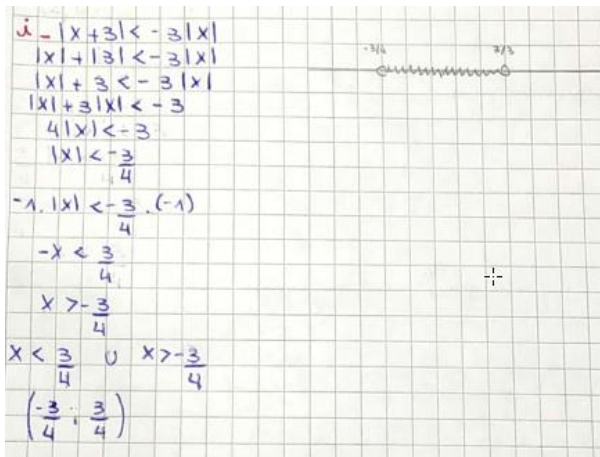 i - |x + 3| < - 3|x|
|x| + |3| < - 3|x|
|x| + 3 < - 3|x|
|x| + 3|x| < - 3
4|x| < - 3
|x| < - 3/4
-1. |x| < - 3/4 . (-1)
-x < 3/4
x > - 3/4
x < 3/4 ∪ x > - 3/4
(-3/4 ; 3/4)
-3/4